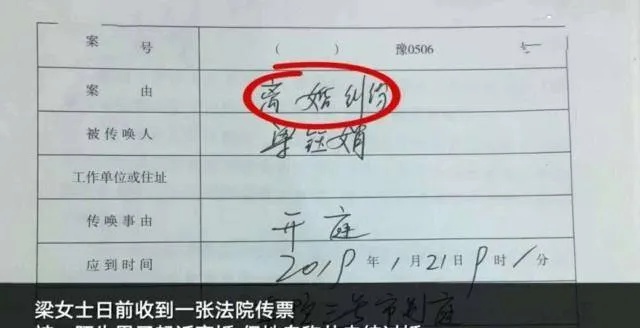 案 号 （ ） 豫0506
案 由 离婚纠纷
被传唤人 梁钰娟
工作单位或住址
传唤事由 开庭
应到时间 2019年1月21日9时 分
梁女士日前收到一张法院传票